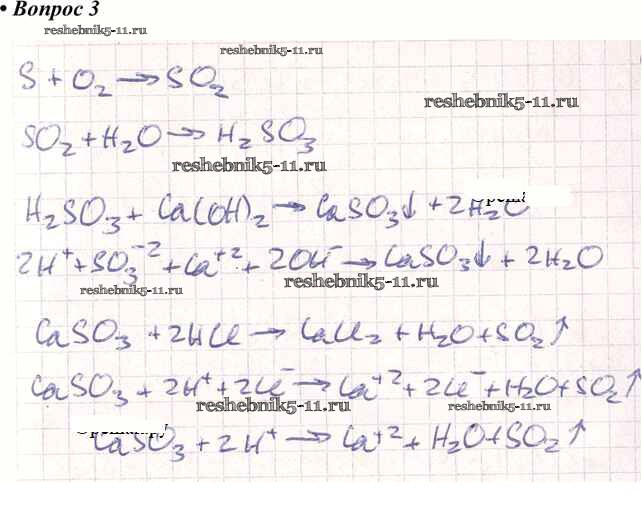 • Вопрос 3
reshebnik5-11.ru
reshebnik5-11.ru
S + O₂ → SO₂
reshebnik5-11.ru
SO₂ + H₂O → H₂SO₃
reshebnik5-11.ru
H₂SO₃ + Ca(OH)₂ → CaSO₃↓ + 2H₂O
2H⁺ + SO₃⁻² + Ca⁺² + 2OH⁻ → CaSO₃↓ + 2H₂O
reshebnik5-11.ru
reshebnik5-11.ru
CaSO₃ + 2HCl → CaCl₂ + H₂O + SO₂↑
CaSO₃ + 2H⁺ + 2Cl⁻ → Ca⁺² + 2Cl⁻ + H₂O + SO₂↑
reshebnik5-11.ru
reshebnik5-11.ru
CaSO₃ + 2H⁺ → Ca⁺² + H₂O + SO₂↑